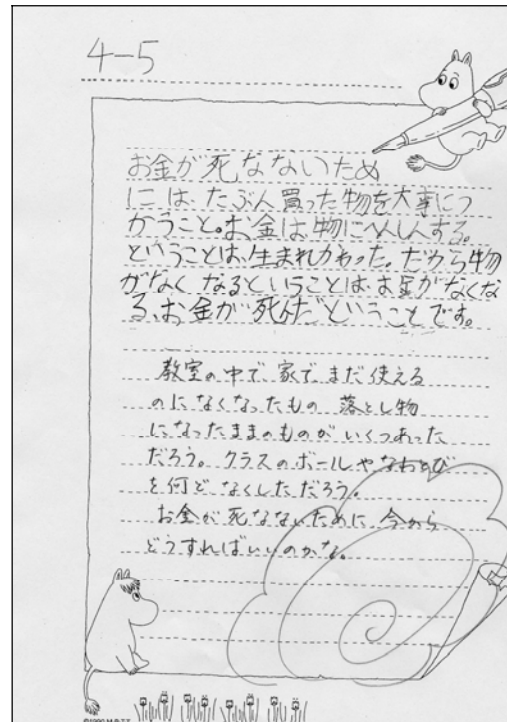 4-5
お金が死なないため
には、たぶん買った物を大事につ
かうこと。お金は物にへんしんする。
ということは、生まれかわった。だから物
がなくなるということは、お金がなくな
る、お金が死んだということです。
教室の中で 家で まだ 使える
のに なくなったもの 落とし物
になったままのものが いくつあった
だろう。クラスのボールや なわとび
を何ど なくしただろう。
お金が 死なないために 今から
どうすればいいのかな。